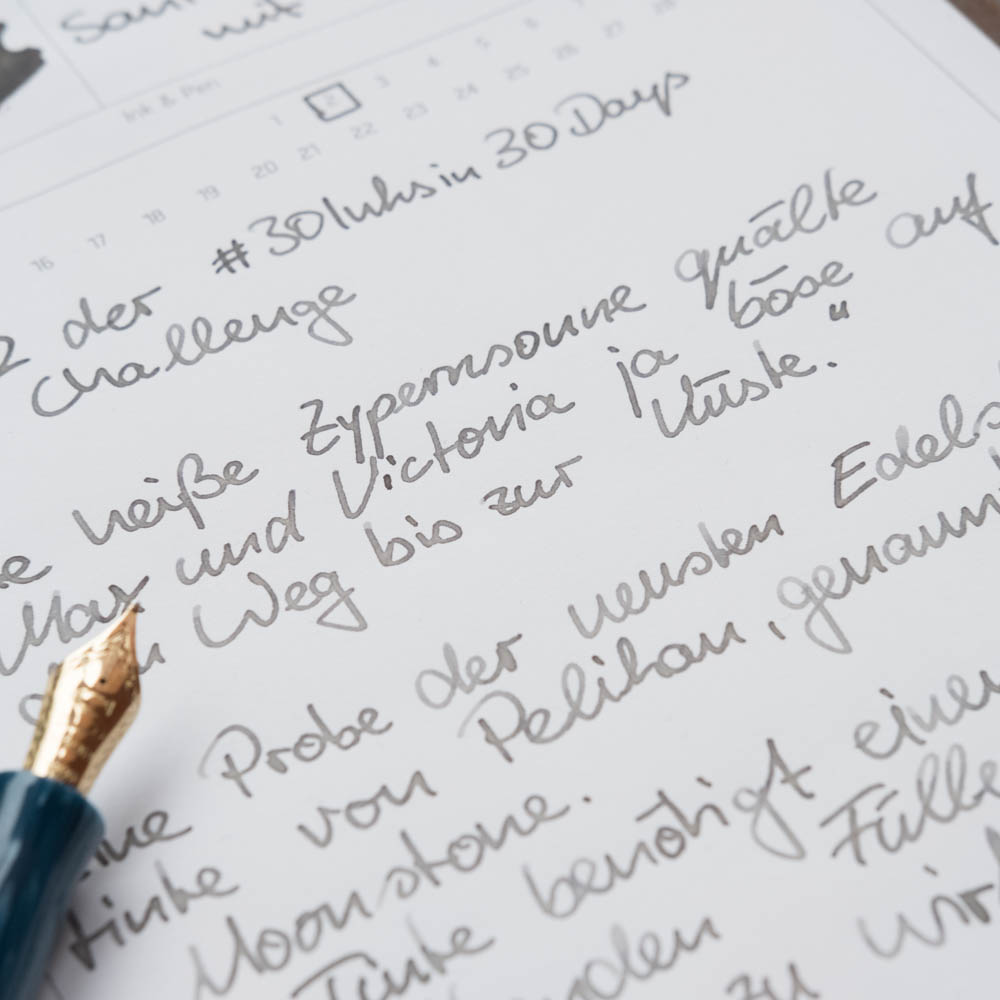 mit
Ink & Pen
1 2 3 4 5
16 17 18 19 20 21 22 23 24 25 26 27 28
2 der #30Inksin30Days
Challenge
heiße Zypernsonne quälte
Max und Victoria ja böse auf
Weg bis zur Küste.“
Probe der neusten Edels
tinte von Pelikan, genannt
Moonstone.
Tinte benötigt einen
Fülle
zu